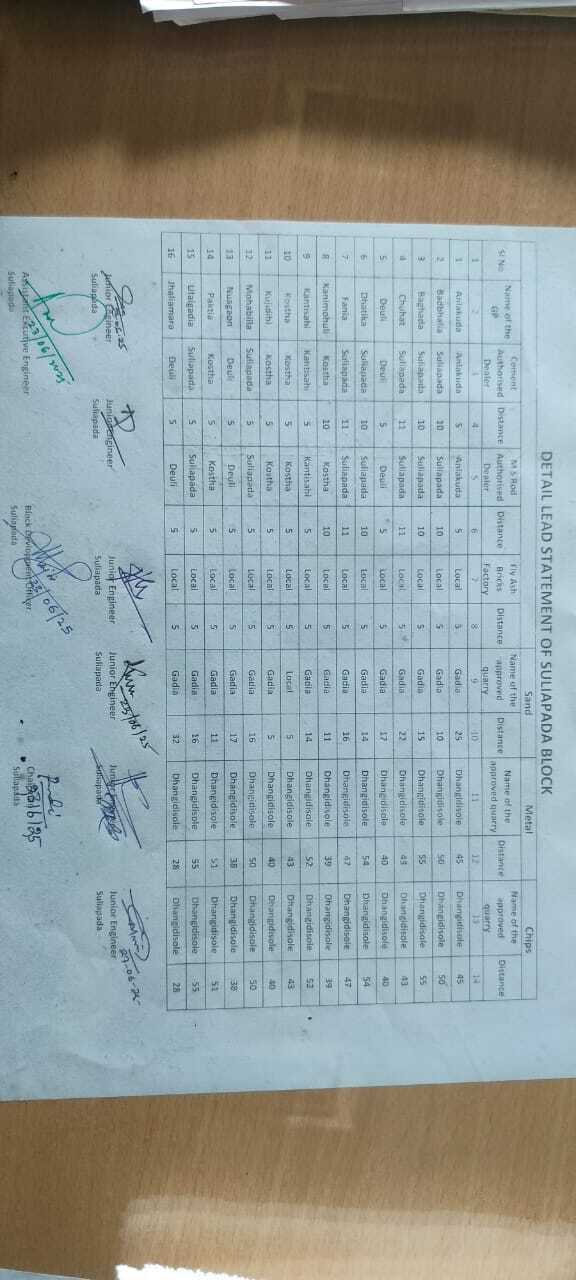 DETAIL LEAD STATEMENT OF SULIAPADA BLOCK
Sl No | Name of the GP | Cement Authorised Dealer | Distance | M S Rod Authorised Dealer | Distance | Fly Ash Bricks Factory | Distance | Sand Name of the approved quarry | Distance | Metal Name of the approved quarry | Distance | Chips Name of the approved quarry | Distance
1 | 2 | 3 | 4 | 5 | 6 | 7 | 8 | 9 | 10 | 11 | 12 | 13 | 14
1 | Anlakuda | Anlakuda | 5 | Anlakuda | 5 | Local | 5 | Gadia | 25 | Dhangidisole | 45 | Dhangidisole | 45
2 | Badbhalia | Suliapada | 10 | Suliapada | 10 | Local | 5 | Gadia | 10 | Dhangidisole | 50 | Dhangidisole | 50
3 | Baghada | Suliapada | 10 | Suliapada | 10 | Local | 5 | Gadia | 15 | Dhangidisole | 55 | Dhangidisole | 55
4 | Chuhat | Suliapada | 11 | Suliapada | 11 | Local | 5 | Gadia | 22 | Dhangidisole | 43 | Dhangidisole | 43
5 | Deuli | Deuli | 5 | Deuli | 5 | Local | 5 | Gadia | 17 | Dhangidisole | 40 | Dhangidisole | 40
6 | Dhatika | Suliapada | 10 | Suliapada | 10 | Local | 5 | Gadia | 14 | Dhangidisole | 54 | Dhangidisole | 54
7 | Fania | Suliapada | 11 | Suliapada | 11 | Local | 5 | Gadia | 16 | Dhangidisole | 47 | Dhangidisole | 47
8 | Kanimohuli | Kostha | 10 | Kostha | 10 | Local | 5 | Gadia | 11 | Dhangidisole | 39 | Dhangidisole | 39
9 | Kantisahi | Kantisahi | 5 | Kantisahi | 5 | Local | 5 | Gadia | 14 | Dhangidisole | 52 | Dhangidisole | 52
10 | Kostha | Kostha | 5 | Kostha | 5 | Local | 5 | Local | 5 | Dhangidisole | 43 | Dhangidisole | 43
11 | Kujdihi | Kostha | 5 | Kostha | 5 | Local | 5 | Gadia | 5 | Dhangidisole | 40 | Dhangidisole | 40
12 | Mohabilla | Suliapada | 5 | Suliapada | 5 | Local | 5 | Gadia | 16 | Dhangidisole | 50 | Dhangidisole | 50
13 | Nuagaon | Deuli | 5 | Deuli | 5 | Local | 5 | Gadia | 17 | Dhangidisole | 38 | Dhangidisole | 38
14 | Paktia | Kostha | 5 | Kostha | 5 | Local | 5 | Gadia | 11 | Dhangidisole | 51 | Dhangidisole | 51
15 | Ufalgadia | Suliapada | 5 | Suliapada | 5 | Local | 5 | Gadia | 16 | Dhangidisole | 55 | Dhangidisole | 55
16 | Jhaliamara | Deuli | 5 | Deuli | 5 | Local | 5 | Gadia | 32 | Dhangidisole | 28 | Dhangidisole | 28
23/06/25
Junior Engineer Junior Engineer Junior Engineer Junior Engineer Junior Engineer
Suliapada Suliapada Suliapada Suliapada Suliapada Suliapada
23/06/2025
Assistant Excutive Engineer Block Devlopment Officer
Suliapada Suliapada Suliapada